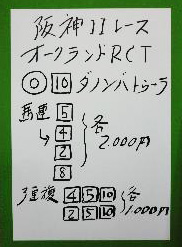 阪神11レース
オークランドRCT
◎ 10 ダノンバトゥーラ
馬連 5
→ 4 各
2 2.000円
8
3連複 4 5 10 各
2 5 10 1.000円